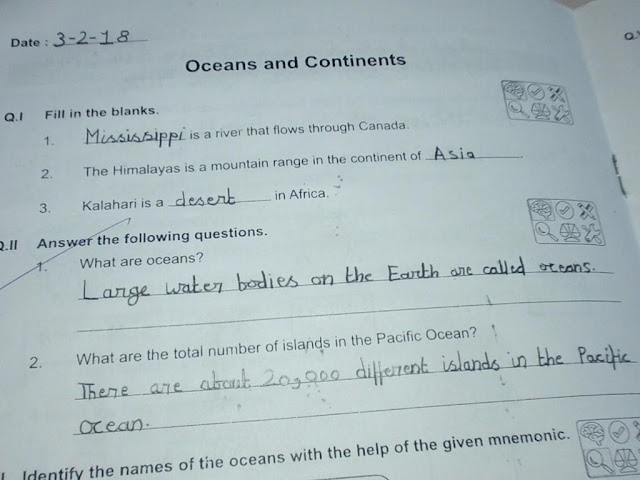 Date : 3-2-18
Oceans and Continents
Q.I Fill in the blanks.
1. Mississippi is a river that flows through Canada.
2. The Himalayas is a mountain range in the continent of Asia.
3. Kalahari is a desert in Africa.
Q.II Answer the following questions.
1. What are oceans?
Large water bodies on the Earth are called oceans.
2. What are the total number of islands in the Pacific Ocean?
There are about 20,000 different islands in the Pacific
Ocean.
Identify the names of the oceans with the help of the given mnemonic.